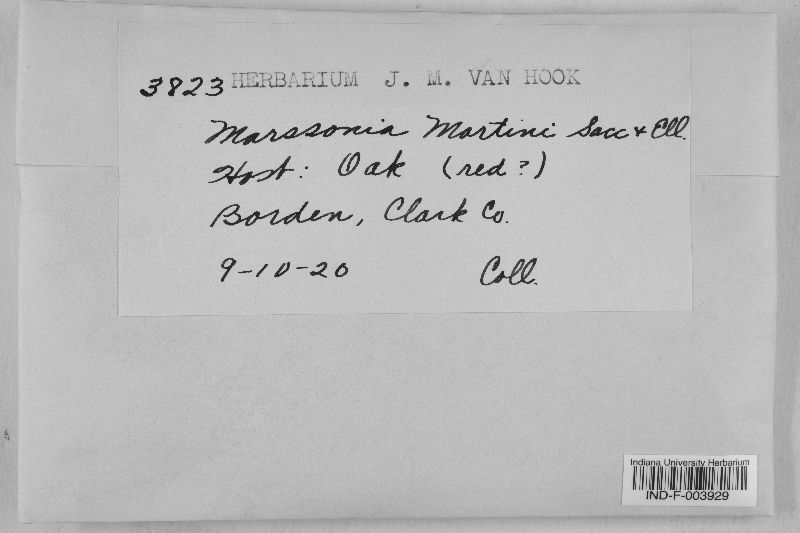 3823 HERBARIUM J. M. VAN HOOK
Marssonia Martini Sacc & Ell.
Host: Oak (red?)
Borden, Clark Co.
9-10-20 Coll.
Indiana University Herbarium
IND-F-003929